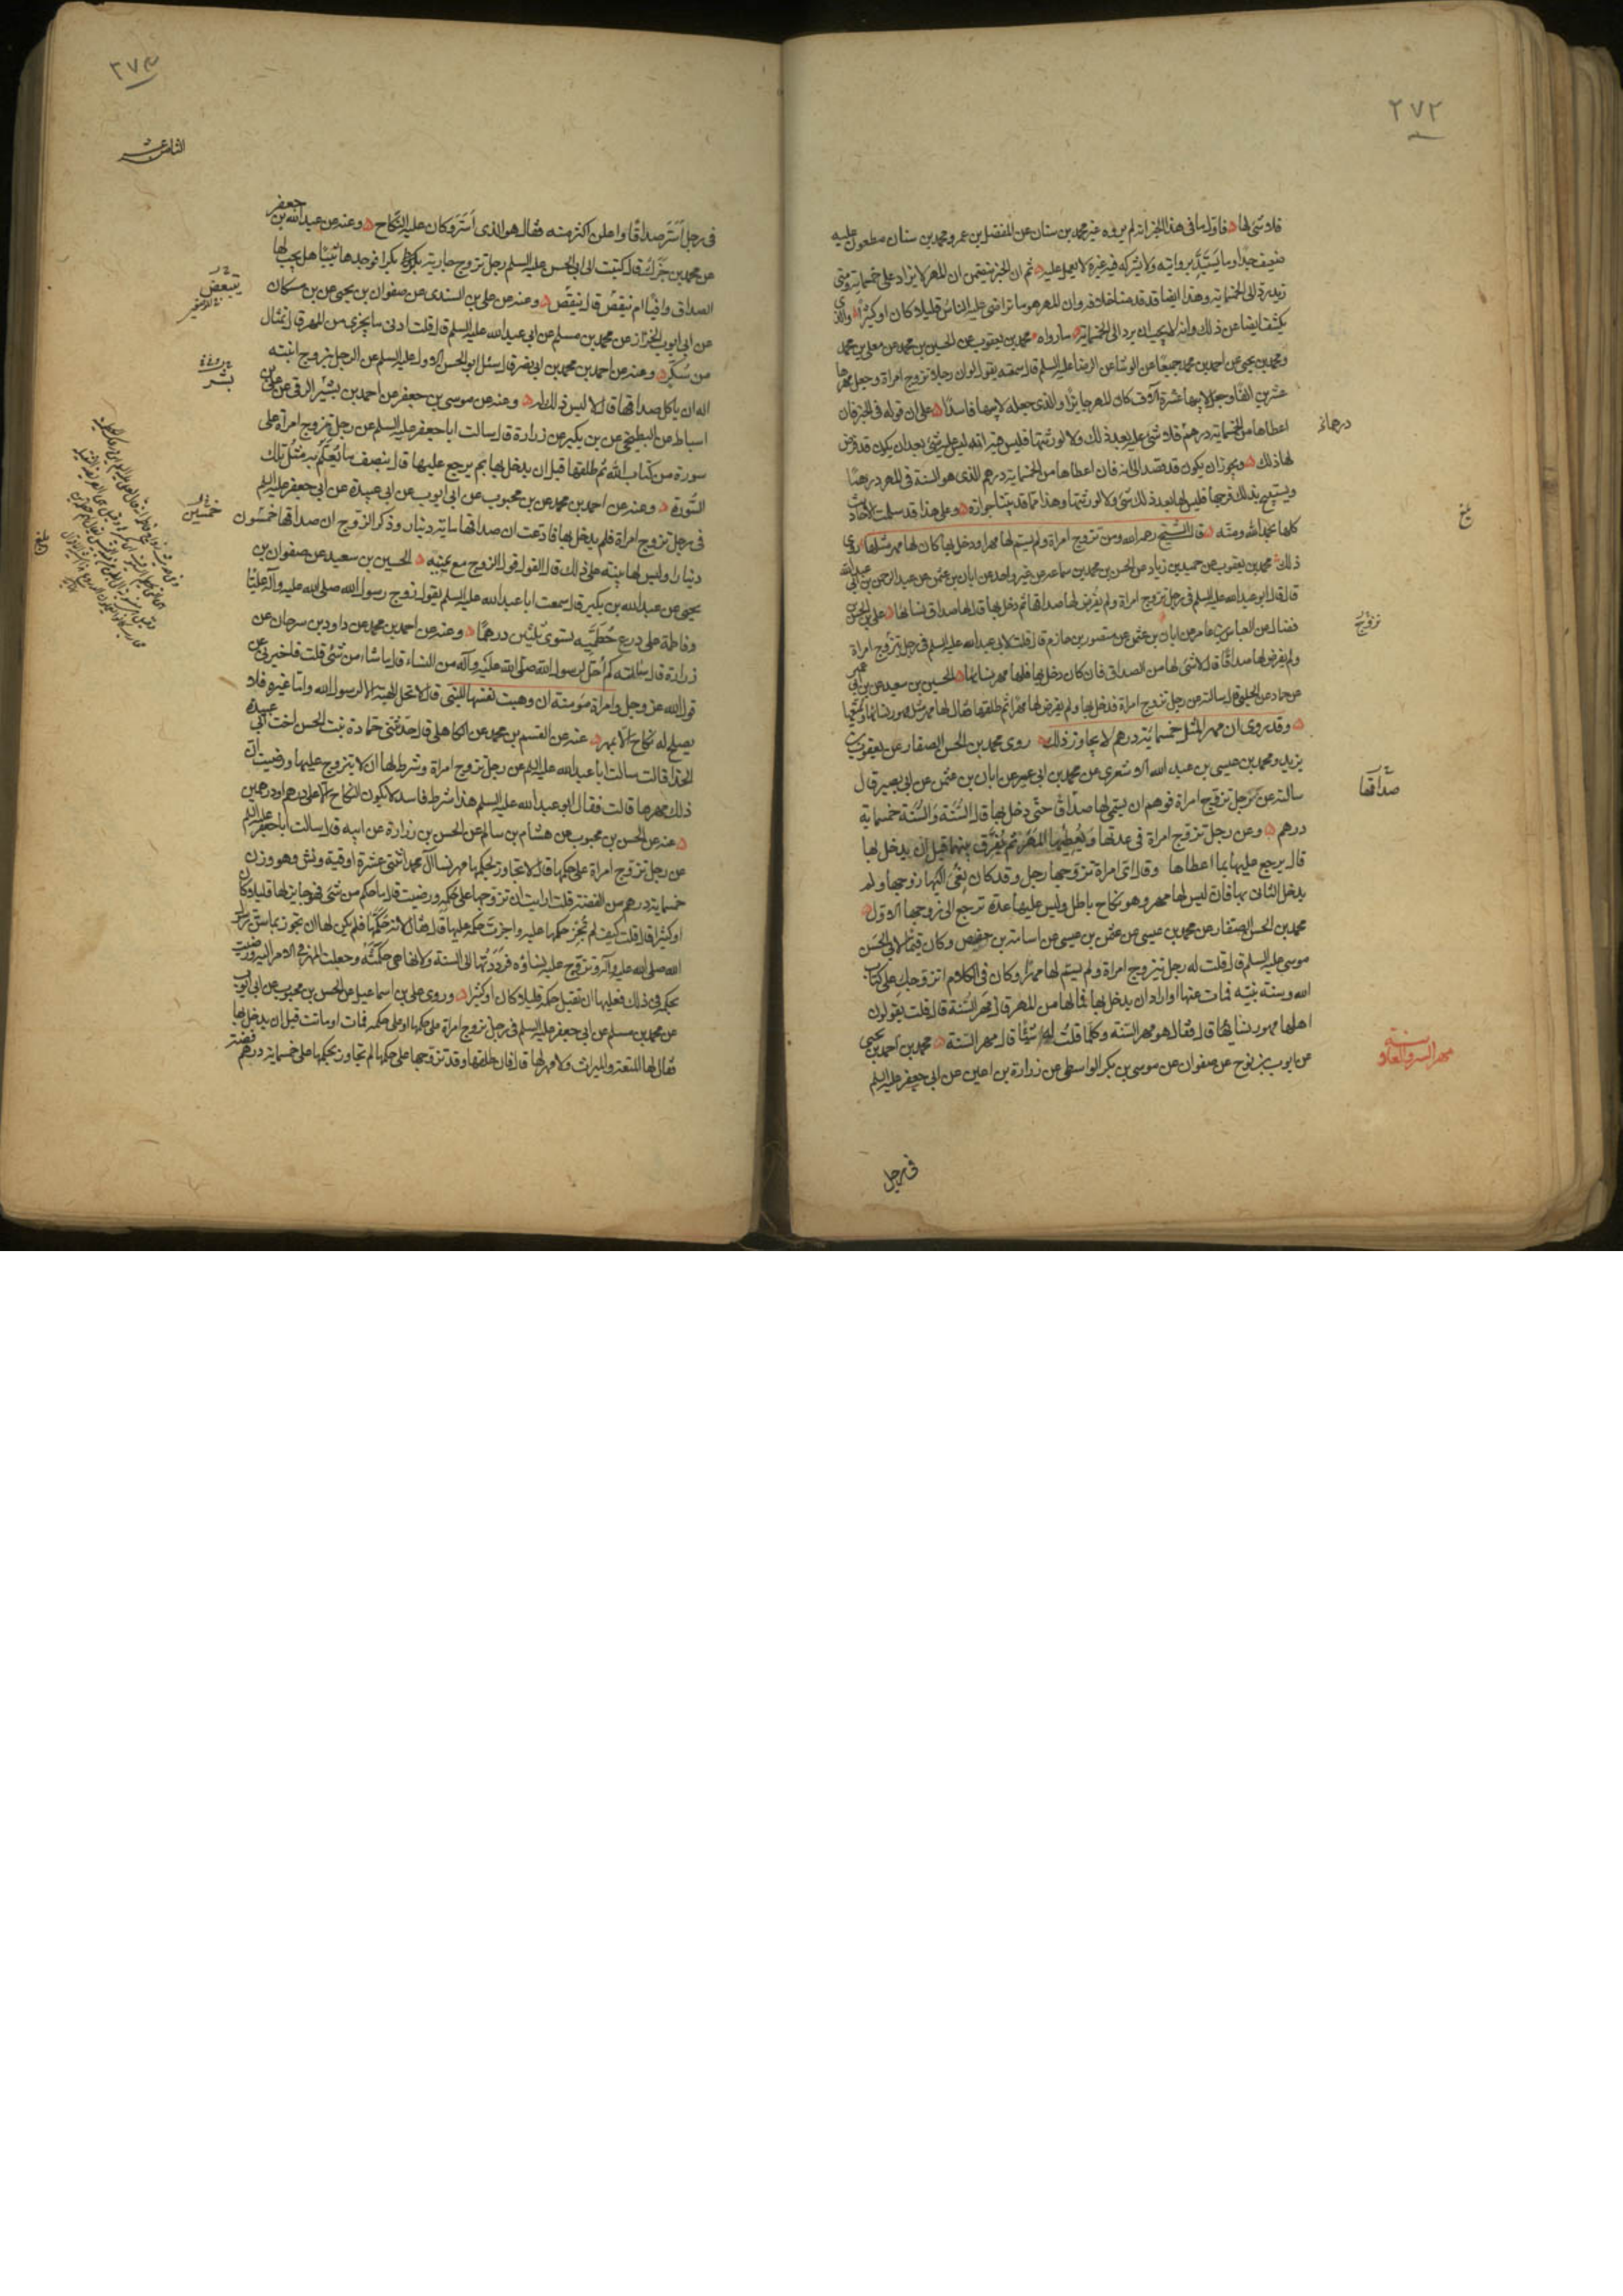 ٢٧٢
فلا شئ لها فاول ما فى هذا الخبر انه لم يروه غير محمد بن سنان عن المفضل بن عمر ومحمد بن سنان مطعون عليه
ضعيف جدا وما يستبد بروايته ولا يشركه فيه غيره لا يعمل عليه ثم ان الخبر يتضمن ان المهر لا يزاد على خمسماية ومتى
زيد رد الى الخمسماية وهذا ايضا قد قدمنا خلافه وان المهر هو ما تراضى عليه الناس قليلا كان او كثيرا والذى
يكشف ايضا عن ذلك وانه لا يجب ان يرد الى الخمسماية ما رواه محمد بن يعقوب عن الحسين بن محمد عن معلى بن محمد
ومحمد بن يحيى عن احمد بن محمد جميعا عن الوشا عن الرضا عليه السلم قال سمعته يقول لو ان رجلا تزوج امراة وجعل مهرها
عشرين الفا وجعل لابيها عشرة آلاف كان المهر جايزا والذى جعله لابيها فاسدا على ان قوله فى الخبر فان
اعطاها من الخمسماية درهم فلا شئ عليه بعد ذلك ولا لورثتها فليس فيه انه ليس عليه شئ بعد ان يكون قد فرض
لها ذلك ويجوز ان يكون قد قصد الى انه فان اعطاها من الخمسماية درهم الذى هو السنة فى المهر درهما
ويستبيح بذلك فرجها فليس لها بعد ذلك شئ ولا لورثتها وهذا مما قد بيناجوازه وعلى هذا قد سلمت الاحاديث
كلها بحمد الله ومنه قال الشيخ رحمه الله ومن تزوج امراة ولم يسم لها مهرا ودخل بها كان لها مهر مثلها روى
ذلك محمد بن يعقوب عن حميد بن زياد عن الحسن بن محمد بن سماعه عن غير واحد عن ابان بن عثمن عن عبد الرحمن بن ابى عبد الله
قال قال ابو عبد الله عليه السلم فى رجل تزوج امراة ولم يفرض لها صداقها ثم دخل بها قال لها صداق نسائها على بن الحسن
فضال عن العباس بن عامر عن ابان بن عثمن عن منصور بن حازم قال قلت لابى عبد الله عليه السلم فى رجل تزوج امراة
ولم يفرض لها صداقا قال لا شئ لها من الصداق فان كان دخل بها فلها مهر نسائها الحسين بن سعيد عن بن ابى عمير
عن حماد عن الحلبى قال سالته عن رجل تزوج امراة فدخل بها ولم يفرض لها مهرا ثم طلقها فقال لها مهر مثل مهور نسائها ويمتعها
وقد روى ان مهر المثل خمسماية درهم لا يجاوز ذلك روى محمد بن الحسن الصفار عن يعقوب بن
يزيد ومحمد بن عيسى بن عبد الله الاشعرى عن محمد بن ابى عمير عن ابان بن عثمن عن ابى بصير قال
سالته عن رجل تزوج امراة فوهم ان يسمى لها صداقا حتى دخل بها قال السنة والسنة خمسماية
درهم وعن رجل تزوج امراة فى عدتها ويعطيها المهر ثم يفرق بينهما قبل ان يدخل بها
قال يرجع عليها بما اعطاها وقال اى امراة تزوجها رجل وقد كان نعى اليها زوجها ولم
يدخل الثانى بها فان ليس لها مهر وهو نكاح باطل وليس عليها عدة ترجع الى زوجها الاول
محمد بن الحسن الصفار عن محمد بن عيسى عن عثمن بن عيسى عن اسامة بن حفص وكان قيما لابى الحسن
موسى عليه السلم قال قلت له رجل يتزوج امراة ولم يسم لها مهرا وكان فى الكلام اتزوجك على كتاب
الله وسنة نبيه فمات عنها او اراد ان يدخل بها فما لها من المهر قال مهر السنة قال قلت يقولون
اهلها مهور نسائها قال فقال هو مهر السنة وكلما قلت له شيئا قال مهر السنة محمد بن احمد بن يحيى
عن ايوب بن نوح عن صفوان عن موسى بن بكر الواسطى عن زرارة بن اعين عن ابى جعفر عليه السلم
فى رجل
درهما
بلغ
تزوج
صداقها
مهر السر والعلانية
٢٧٣
الثامن عشر
فى رجل اسر صداقا واعلن اكثر منه فقال هو الذى اسر وكان عليه النكاح وعنه عن عبد الله بن جعفر
عن محمد بن جزك قال كتبت الى ابى الحسن عليه السلم رجل تزوج جارية بكرا فوجدها ثيبا هل يجب لها
الصداق وافيا ام ينقص قال ينقص وعنه عن على بن السندى عن صفوان بن يحيى عن بن مسكان
عن ابى ايوب الخزاز عن محمد بن مسلم عن ابى عبد الله عليه السلم قال قلت ادنى ما يجزى من المهر قال تمثال
من سكر وعنه عن احمد بن محمد بن ابى نصر قال سئل ابو الحسن الاول عليه السلم عن الرجل يزوج ابنته
اله ان ياكل صداقها قال لا ليس ذلك له وعنه عن موسى بن جعفر عن احمد بن بشير الرقى عن على بن
اسباط عن البطيخى عن بن بكير عن زرارة قال سالت ابا جعفر عليه السلم عن رجل تزوج امراة على
سورة من كتاب الله ثم طلقها قبل ان يدخل بها بم يرجع عليها قال بنصف ما يعلم به مثل تلك
السورة وعنه عن احمد بن محمد عن بن محبوب عن ابى ايوب عن ابى عبيدة عن ابى جعفر عليه السلم
فى رجل تزوج امراة فلم يدخل بها فادعت ان صداقها ماية دينار وذكر الزوج ان صداقها خمسون
دينارا وليس لها بينة على ذلك قال القول قول الزوج مع يمينه الحسين بن سعيد عن صفوان بن
يحيى عن عبد الله بن بكير قال سمعت ابا عبد الله عليه السلم يقول زوج رسول الله صلى الله عليه وآله عليا
وفاطمة على درع حطمية تسوى ثلثين درهما وعنه عن احمد بن محمد عن داود بن سرحان عن
زرارة قال سالته كم احل لرسول الله صلى الله عليه وآله من النساء قال ما شاء من شئ قلت فاخبرنى عن
قول الله عز وجل وامراة مومنة ان وهبت نفسها للنبى قال لا تحل الهبة الا لرسول الله واما غيره فلا
يصلح له نكاح الا بمهر عنه عن القسم بن محمد عن الكاهلى قال حدثتنى حمادة بنت الحسن اخت ابى عبيدة
الحذا قالت سالت ابا عبد الله عليه السلم عن رجل تزوج امراة وشرط لها ان لا يتزوج عليها ورضيت ان
ذلك مهرها قالت فقال ابو عبد الله عليه السلم هذا شرط فاسد لا يكون النكاح الا على درهم او درهمين
عنه عن الحسن بن محبوب عن هشام بن سالم عن الحسن بن زرارة عن ابيه قال سالت ابا جعفر عليه السلم
عن رجل تزوج امراة على حكمها قال لا تجاوز بحكمها مهر نسا آل محمد اثنتى عشرة اوقية ونش وهو وزن
خمسماية درهم من الفضة قلت ارايت ان تزوجها على حكمه ورضيت قال ما حكم من شئ فهو جايز لها قليلا كان
او كثيرا قال قلت كيف لم تجز حكمها عليه واجزت حكمه عليها قال فقال لانه حكمها فلم يكن لها ان تجوز ما سن رسول
الله صلى الله عليه وآله وتزوج عليه نساؤه فرددتها الى السنة ولانها هى حكمته وجعلت المهر فى الامر اليه ورضيت
بحكمه فى ذلك فعليها ان تقبل حكمه قليلا كان او كثيرا وروى على بن اسماعيل عن الحسن بن محبوب عن ابى ايوب
عن محمد بن مسلم عن ابى جعفر عليه السلم فى رجل تزوج امراة على حكمها او على حكمه فمات او ماتت قبل ان يدخل بها
فقال لها المتعة والميراث ولا مهر لها قال فان طلقها وقد تزوجها على حكمها لم تجاوز بحكمها على خمسماية درهم فضة
ينتقص
بشر
خمسين
بلغ